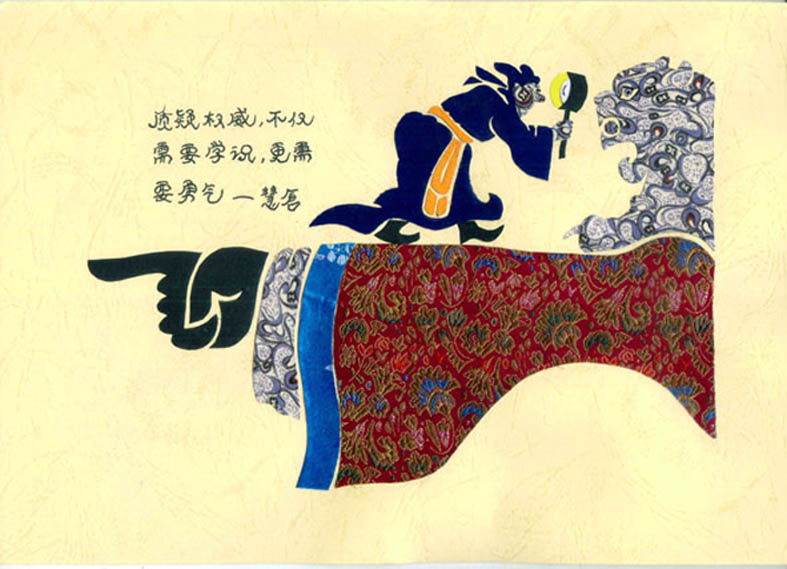 质疑权威,不仅
需要学识,更需
要勇气 —慧